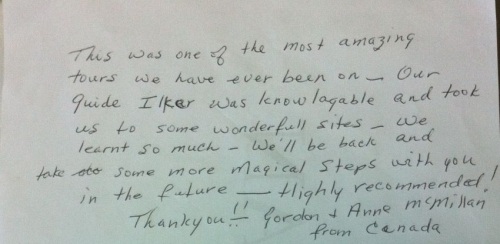 This was one of the most amazing
tours we have ever been on — Our
guide Ilker was knowlagable and took
us to some wonderfull sites — we
learnt so much — we'll be back and
take some more magical steps with you
in the future — Highly recommended!
Thankyou!! Gordon + Anne McMillan
from Canada